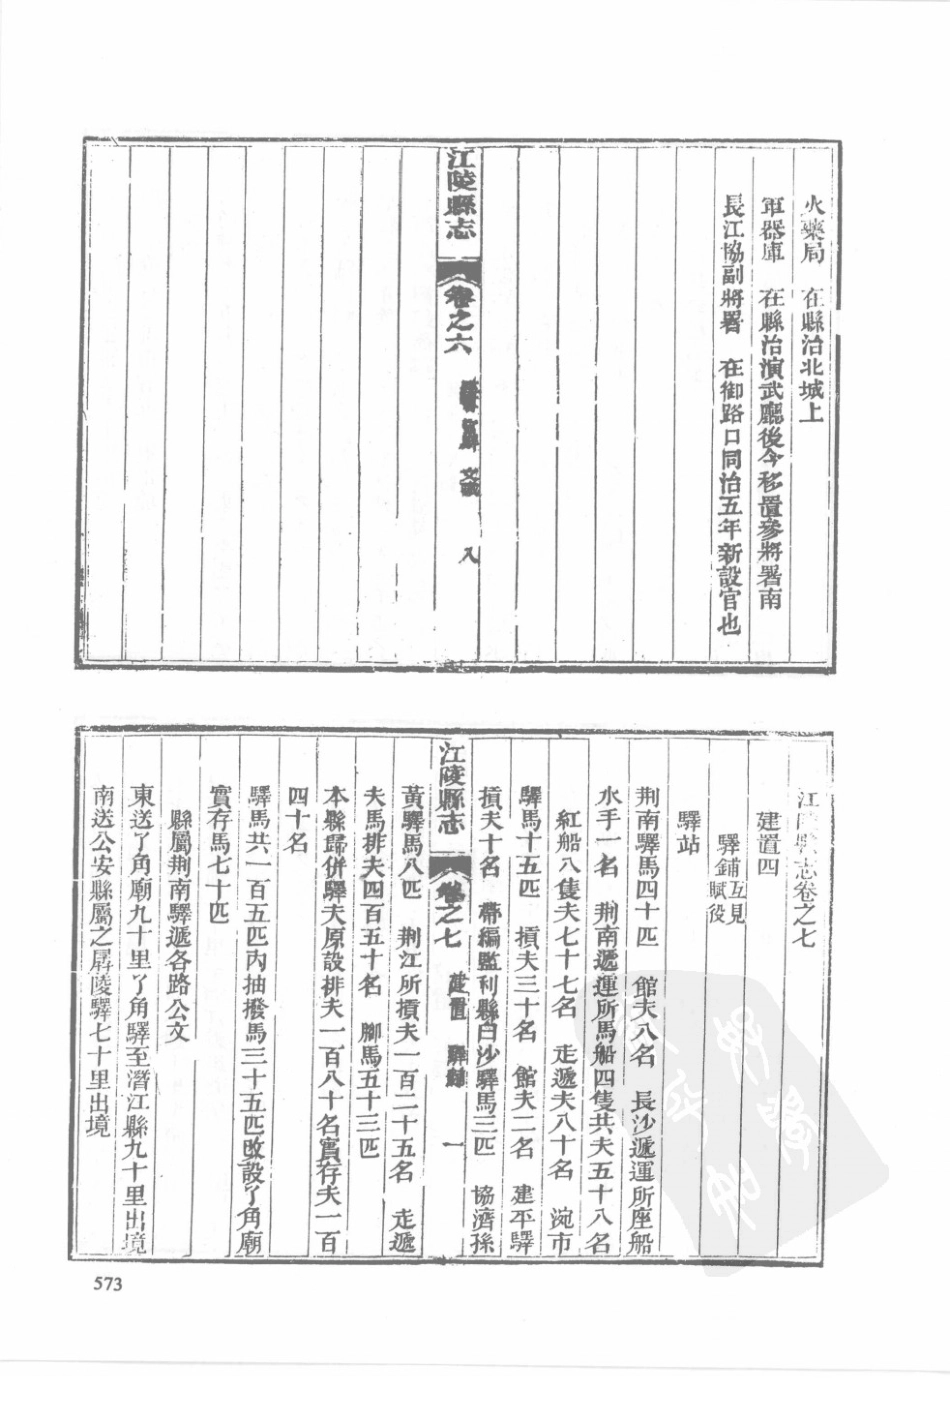 火藥局　在縣治北城上
軍器庫　在縣治演武廳後今移置參將署南
長江協副將署　在御路口同治五年新設官也
江陵縣志　卷之六　八
江陵縣志卷之七
建置四
驛鋪互見賦役
驛站
荆南驛馬四十匹　館夫八名　長沙遞運所座船
水手一名　荆南遞運所馬船四隻共夫五十八名
紅船八隻夫七十七名　走遞夫八十名　涴市
驛馬十五匹　損夫三十名　館夫二名　建平驛
損夫十名　帶編監利縣白沙驛馬三匹　協濟孫
江陵縣志　卷之七　建置　驛鋪　一
黃驛馬八匹　荆江所損夫一百二十五名　走遞
夫馬排夫四百五十名　腳馬五十三匹
本縣歸併驛夫原設排夫一百八十名實存夫一百
四十名
驛馬共一百五匹內抽撥馬三十五匹改設了角廟
實存馬七十匹
縣屬荆南驛遞各路公文
東送了角廟九十里了角驛至潛江縣九十里出境
南送公安縣屬之孱陵驛七十里出境
573